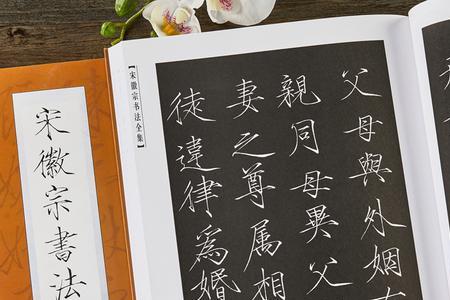 宋徽宗書法
【宋徽宗书法全集】
父母與外姻
親同母異父
妻之尊属相
徒違律為婚